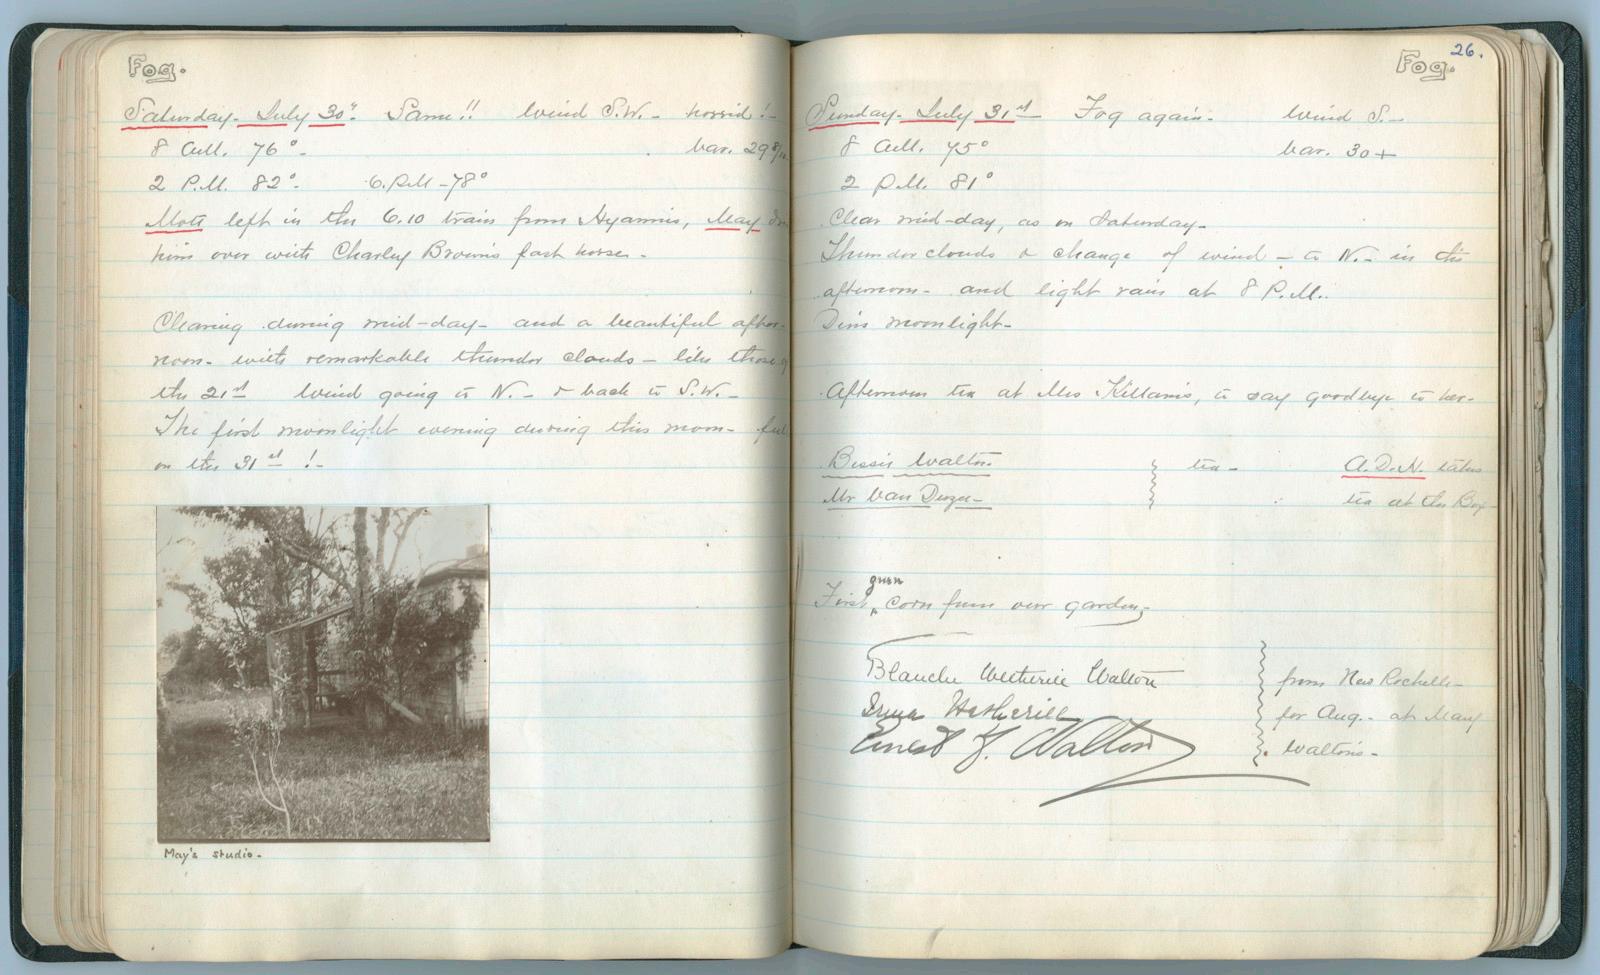 Fog.
Saturday. July 30" Same!! Wind S.W. – horrid! –
8 A.M. 76°. bar. 29 8/10
2 P.M. 82°. 6. P.M – 78°
Mott left in the 6.10 train from Hyannis, May
him over with Charley Brown's fast horse. –
Clearing during mid-day – and a beautiful after-
noon – with remarkable thunder clouds – like those
the 21st Wind going to N. – & back to S.W. –
The first moonlight evening during this moon – full
on the 31st ! –
May's studio –
26.
Fog.
Sunday. July 31st Fog again – Wind S. –
8 A.M. 75° bar. 30+
2 P.M. 81°
Clear mid-day, as on Saturday –
Thunder clouds & change of wind – to N. – in the
afternoon – and light rain at 8 P.M.
Dim moonlight –
Afternoon tea at Mrs Killam's, to say goodbye to her –
Bessie Walton tea – A.D.N. takes
Mr Van Duzee – tea at the
green
First ‸ corn from our garden –
Blanche Wetherill Walton from New Rochelle –
Irma Wetherill for Aug. – at Mary
Ernest F. Walton Walton's –